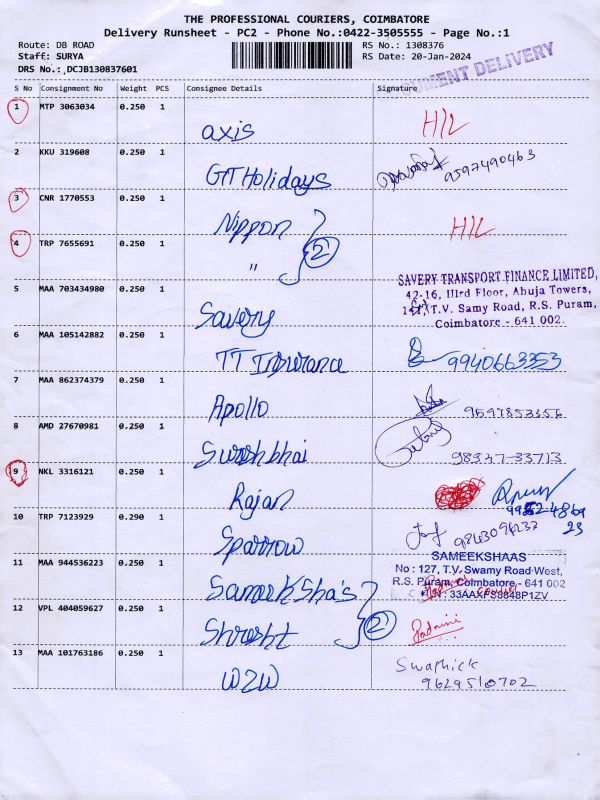 THE PROFESSIONAL COURIERS, COIMBATORE
Delivery Runsheet - PC2 - Phone No.:0422-3505555 - Page No.:1
Route: DB ROAD
Staff: SURYA
DRS No.: DCJB130837601
RS No.: 1308376
RS Date: 20-Jan-2024
UMENT DELIVERY
S No Consignment No Weight PCS Consignee Details Signature
1 MTP 3063034 0.250 1 axis H/L
2 KKU 319608 0.250 1 GTT Holidays 9597490463
3 CNR 1770553 0.250 1 Nippon H/L
4 TRP 7655691 0.250 1 " 2
5 MAA 703434980 0.250 1 Savery
SAVERY TRANSPORT FINANCE LIMITED,
42-16, IIIrd Floor, Abuja Towers,
T.V. Samy Road, R.S. Puram,
Coimbatore - 641 002.
6 MAA 105142882 0.250 1 TT Insurance 9940663353
7 MAA 862374379 0.250 1 Apollo 9597853356
8 AMD 27670981 0.250 1 Sureshbhai 98937-33713
9 NKL 3316121 0.250 1 Rajan
10 TRP 7123929 0.290 1 Sparrow 9843096237
11 MAA 944536223 0.250 1 Sameeksha's
SAMEEKSHAAS
No : 127, T.V. Swamy Road West,
R.S. Puram, Coimbatore - 641 002
33AAXFS8848P1ZV
12 VPL 404059627 0.250 1 Shresht 2 Padmini
13 MAA 101763186 0.250 1 W2W Swathick
9629510702